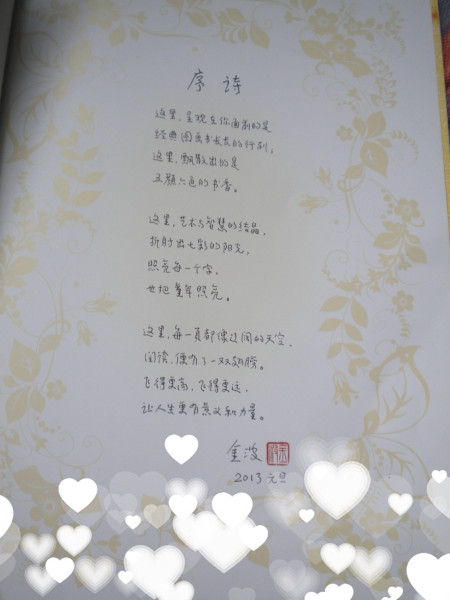 序诗
这里，呈现在你面前的是
经典图画书长长的行列；
这里，飘散出的是
五颜六色的书香。
这里，艺术与智慧的结晶，
折射出七彩的阳光，
照亮每一个字，
也把童年照亮。
这里，每一页都像辽阔的天空，
阅读，便有了一双翅膀。
飞得更高，飞得更远，
让人生更有意义和力量。
金波
2013 元旦